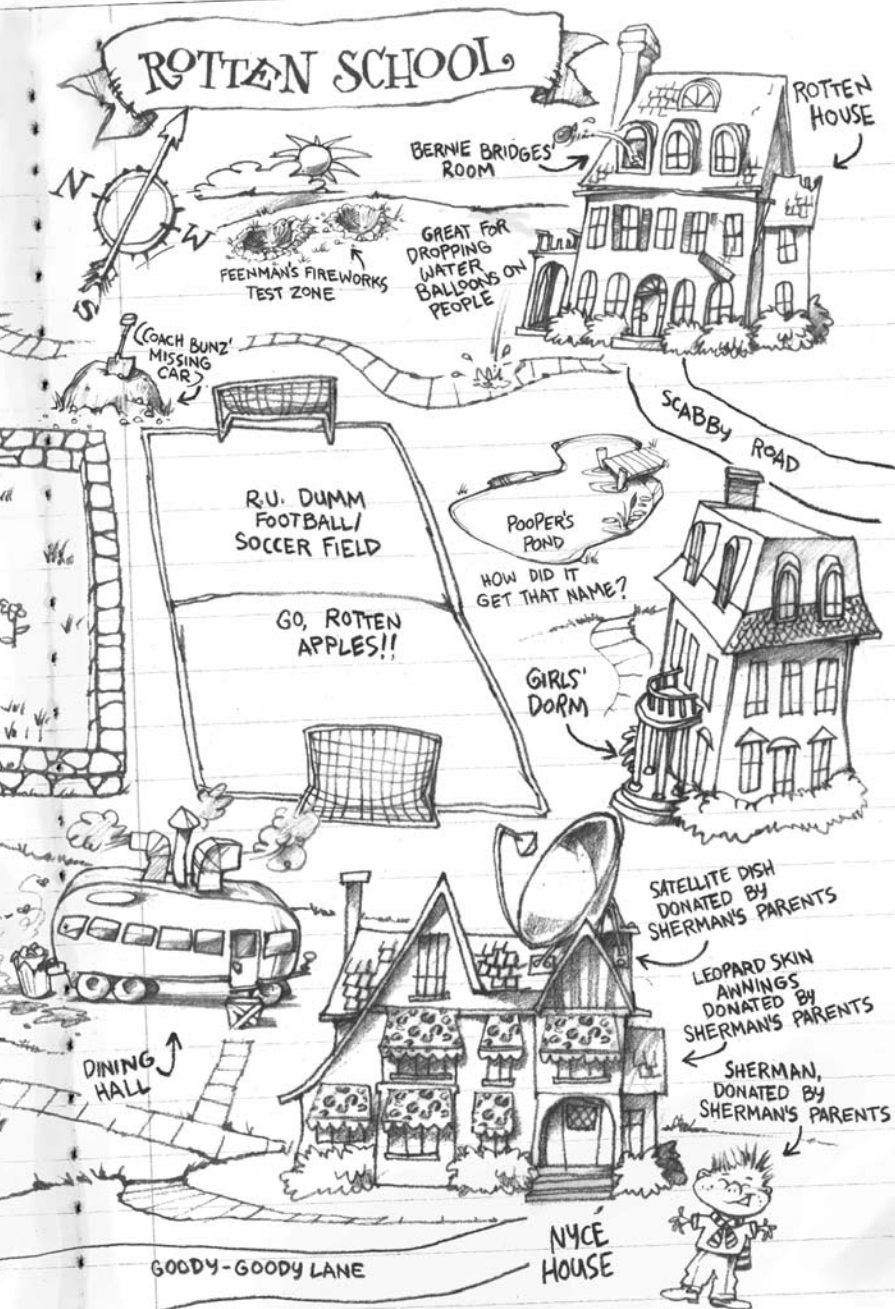 ROTTEN SCHOOL
N
W
S
BERNIE BRIDGES'
ROOM
ROTTEN
HOUSE
FEENMAN'S FIREWORKS
TEST ZONE
GREAT FOR
DROPPING
WATER
BALLOONS ON
PEOPLE
COACH BUNZ'
MISSING
CAR
SCABBY ROAD
R.U. DUMM
FOOTBALL/
SOCCER FIELD
GO, ROTTEN
APPLES!!
POOPER'S
POND
HOW DID IT
GET THAT NAME?
GIRLS'
DORM
SATELLITE DISH
DONATED BY
SHERMAN'S PARENTS
LEOPARD SKIN
ANNINGS
DONATED BY
SHERMAN'S PARENTS
DINING
HALL
SHERMAN,
DONATED BY
SHERMAN'S PARENTS
NYCE
HOUSE
GOODY-GOODY LANE